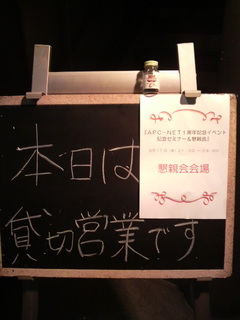 本日は
貸切営業です
『AFC-NET1周年記念イベント
記念セミナー&懇親会』
懇親会会場